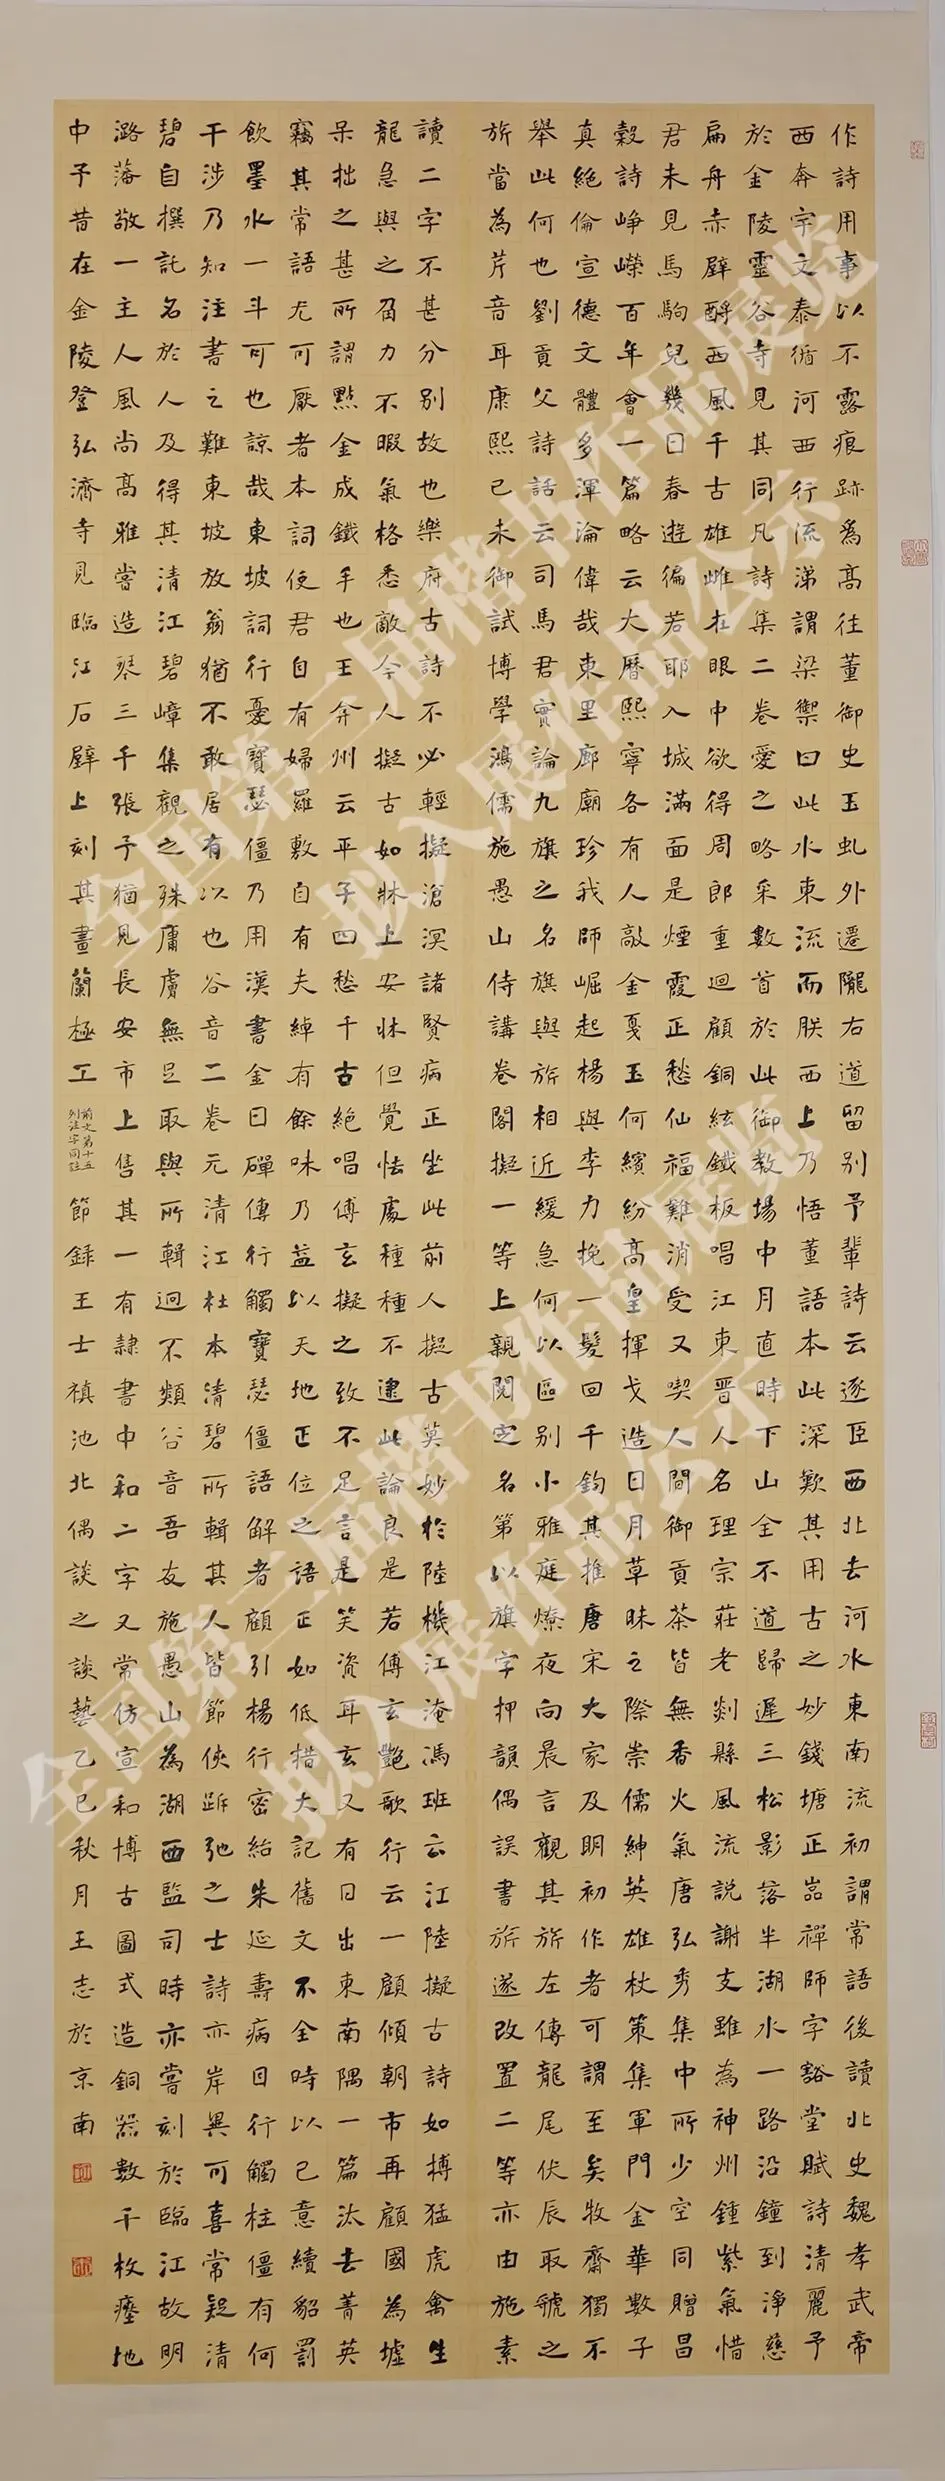 作詩用事以不露痕跡爲高往董御史玉虬外遷隴右道留別予輩詩云逐臣西北去河水東南流初謂常語後讀北史魏孝武帝
西奔宇文泰循河西行流涕謂梁禦曰此水東流而朕西上乃悟董語本此深歎其用古之妙錢塘正嵒禪師字豁堂賦詩清麗予
於金陵靈谷寺見其同凡詩集二卷愛之略采數首於此御教場中月直時下山全不道歸遲三松影落半湖水一路沿鐘到淨慈
扁舟赤壁酹西風千古雄雌在眼中欲得周郎重迴顧銅絃鐵板唱江東晉人名理宗莊老剡縣風流說謝支雖為神州鍾紫氣惜
君未見馬駒兒幾日春遊徧若耶入城滿面是煙霞正愁仙福難消受又喫人間御貢茶皆無香火氣唐弘秀集中所少空同贈昌
穀詩崢嶸百年會一篇略云大曆熙寧各有人敲金戛玉何繽紛高皇揮戈造日月草昧之際崇儒紳英雄杖策集軍門金華數子
真絕倫宣德文體多渾淪偉哉東里廊廟珍我師崛起楊與李力挽一髮回千鈞其推唐宋大家及明初作者可謂至矣牧齋獨不
舉此何也劉貢父詩話云司馬君實論九旗之名旗與旂相近緩急何以區別小雅庭燎夜向晨言觀其旂左傳龍尾伏辰取虢之
旂當為芹音耳康熙己未御試博學鴻儒施愚山侍講卷閣擬一等上親閱定名第以旗字押韻偶誤書旂遂改置二等亦由施素
讀二字不甚分別故也樂府古詩不必輕擬滄溟諸賢病正坐此前人擬古莫妙於陸機江淹馮班云江陸擬古詩如搏猛虎禽生
龍急與之角力不暇氣格悉敵今人擬古如牀上安牀但覺怯處種種不逮此論良是若傅玄艷歌行云一顧傾朝市再顧國為墟
呆拙之甚所謂點金成鐵手也王弇州云平子四愁千古絕唱傅玄擬之致不足言是笑資耳玄又有日出東南隅一篇汰去菁英
竊其常語尤可厭者本詞使君自有婦羅敷自有夫綽有餘味乃益以天地正位之語正如低措大記舊文不全時以己意續貂罰
飲墨水一斗可也諒哉東坡詞行憂寶瑟僵乃用漢書金日磾傳行觸寶瑟僵語解者顧引楊行密紿朱延壽病目行觸柱僵有何
干涉乃知注書之難東坡放翁猶不敢居有以也谷音二卷元清江杜本清碧所輯其人皆節俠跅弛之士詩亦岸異可喜常疑清
碧自撰託名於人及得其清江碧嶂集觀之殊庸膚無足取與所輯迥不類谷音吾友施愚山為湖西監司時亦嘗刻於臨江故明
潞藩敬一主人風尚高雅嘗造琴三千張予猶見長安市上售其一有隷書中和二字又常仿宣和博古圖式造銅器數千枚瘞地
中予昔在金陵登弘濟寺見臨江石壁上刻其畫蘭極工前文第十五列注字同註節録王士禛池北偶談之談藝乙巳秋月王志於京南
全国第三届楷书作品展览
拟入展作品公示
全国第三届楷书作品展览
拟入展作品公示